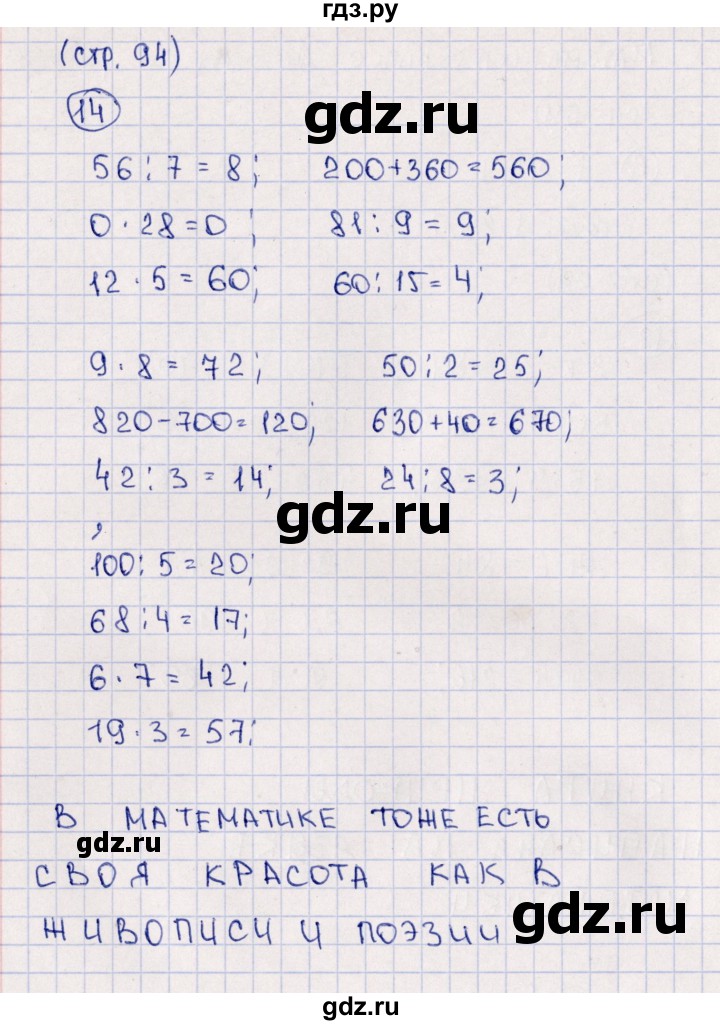 гдз.ру
(стр. 94)
gdz.ru
14
56 : 7 = 8; 200+360=560;
0 · 28=0 ; 81 : 9 = 9;
12 · 5 = 60; 60 : 15=4;
9 · 8 = 72; 50 : 2 = 25;
820-700=120; 630+40=670;
42 : 3 = 14; 24 : 8 = 3;
gdz.ru
,
100 : 5 = 20;
68 : 4 = 17;
6 · 7 = 42;
19 · 3 = 57;
В МАТЕМАТИКЕ ТОЖЕ ЕСТЬ
gdz.ru
СВОЯ КРАСОТА КАК В
ЖИВОПИСИ И ПОЭЗИИ
gdz.ru
gdz.ru